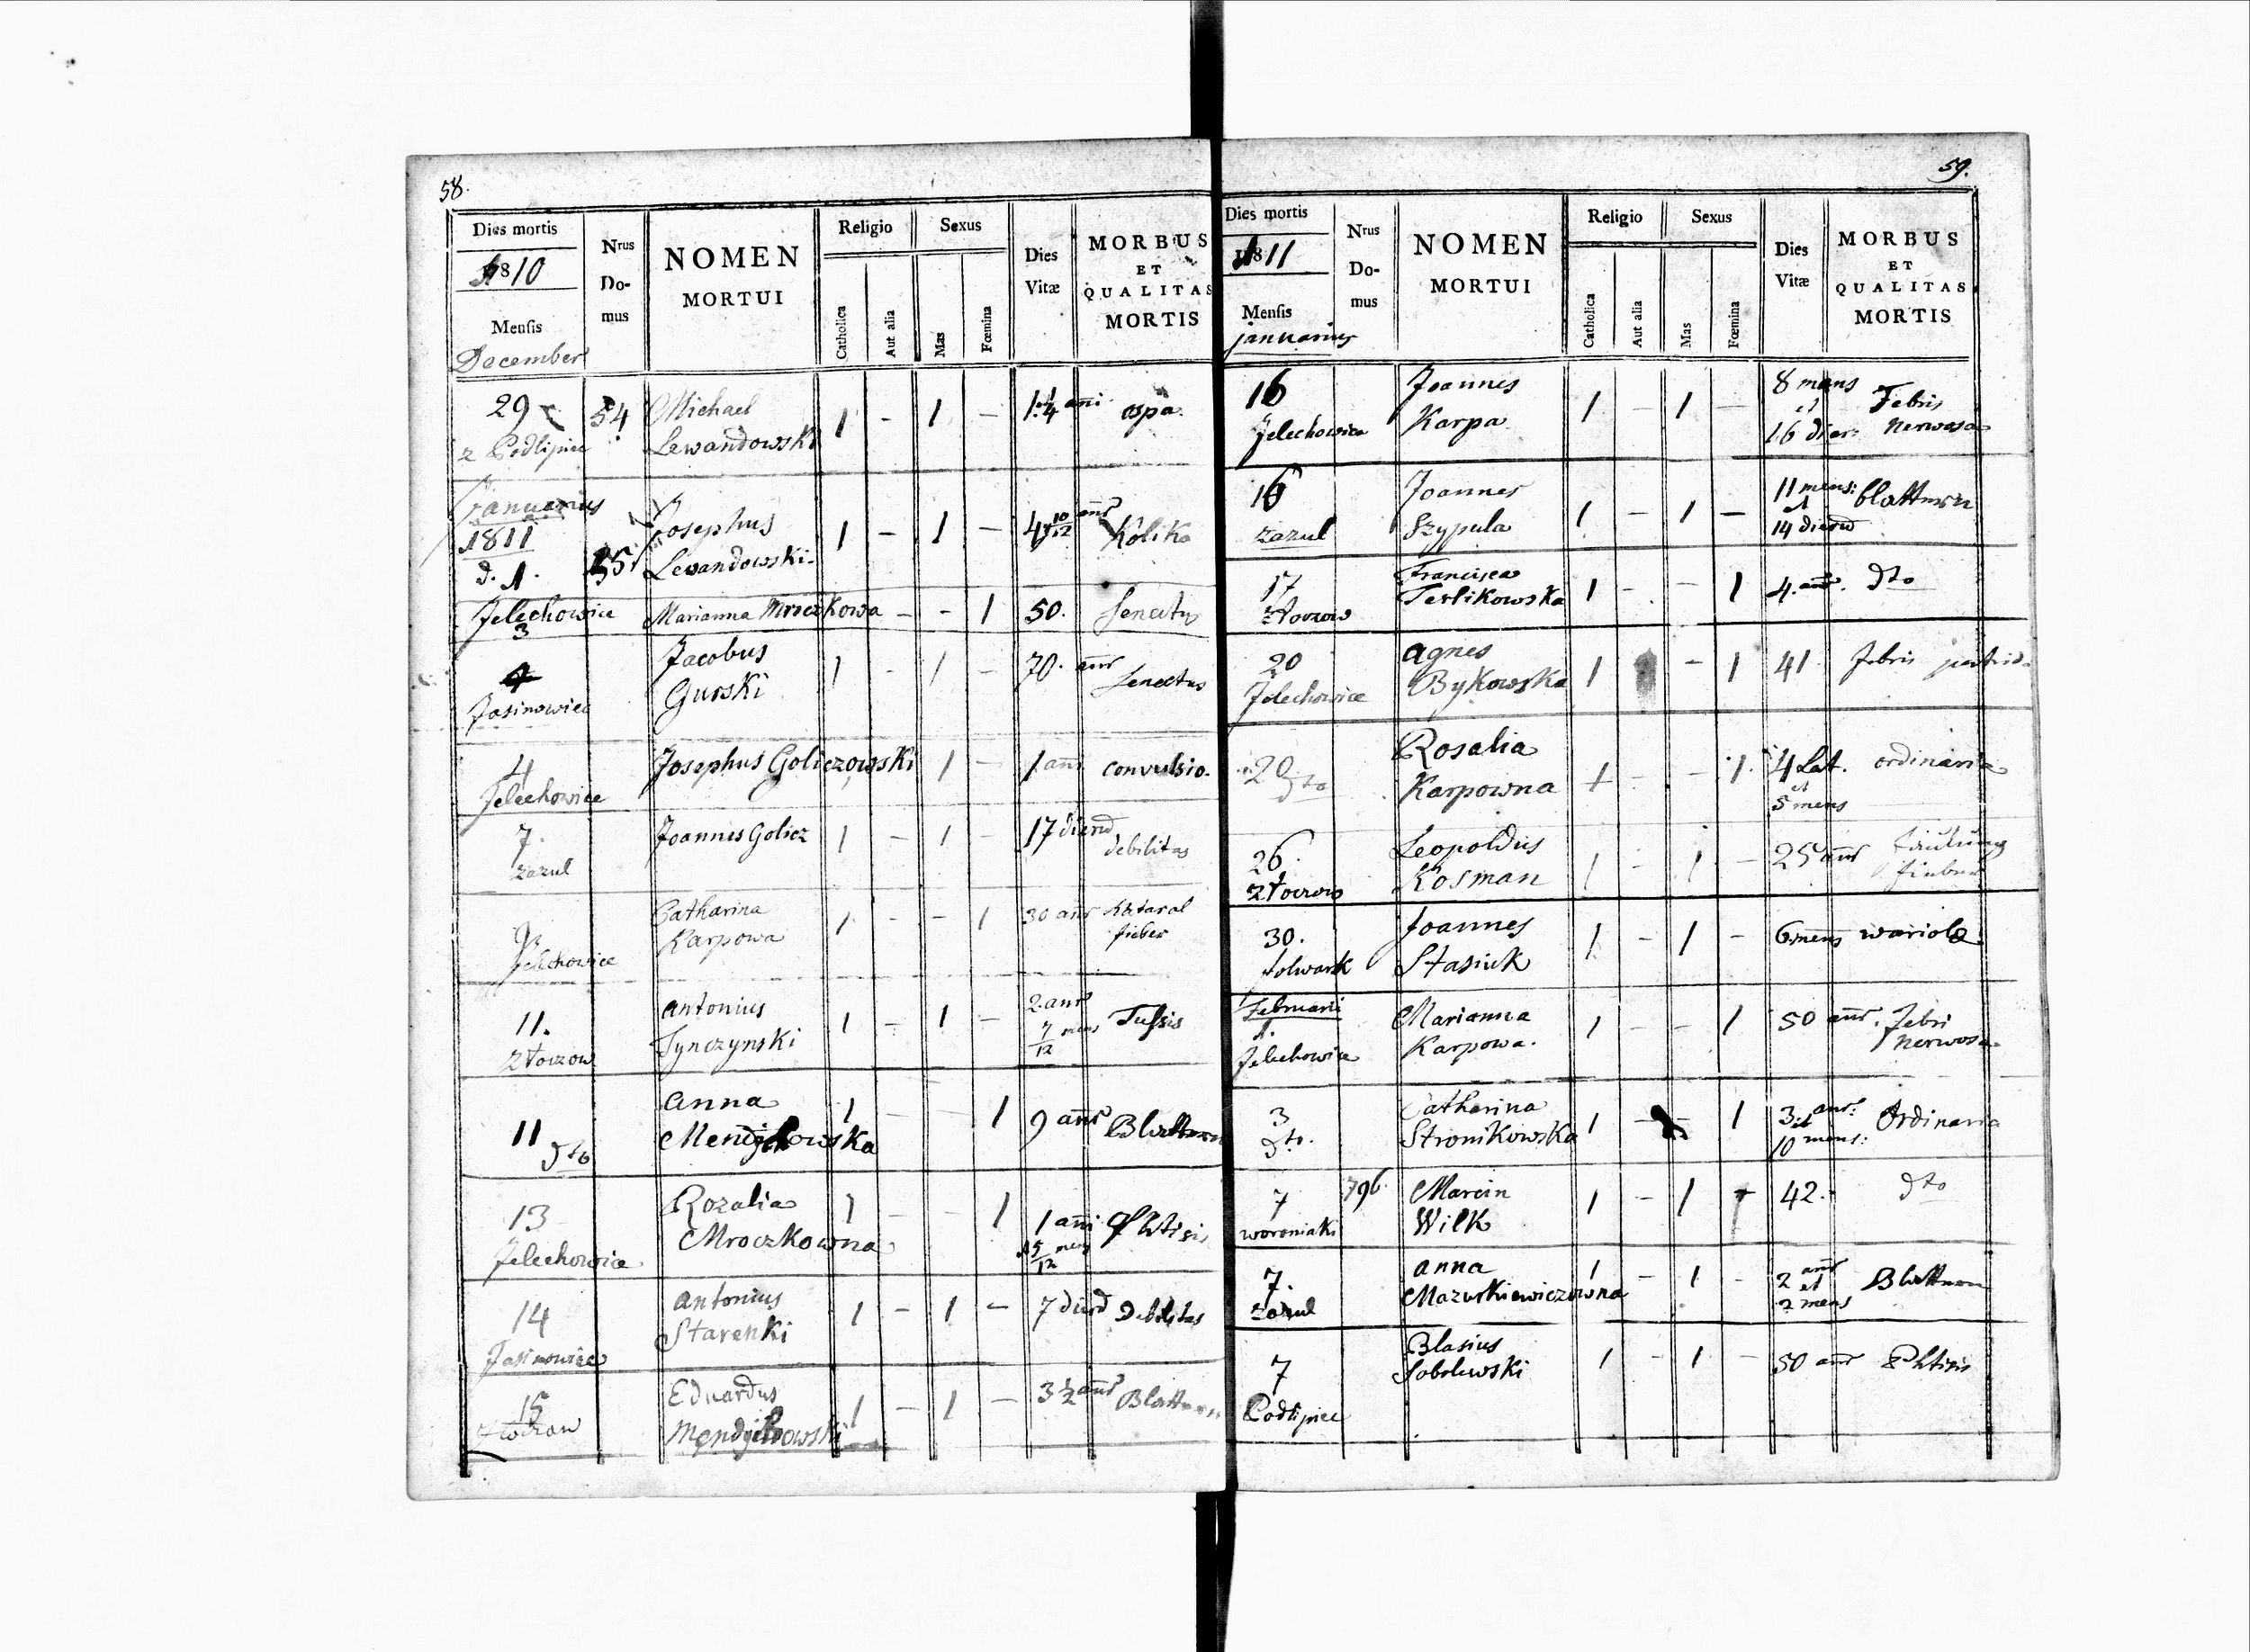 58.
Dies mortis
1810
Mensis
December
Nrus
Do-
mus
NOMEN
MORTUI
Religio
Catholica
Aut alia
Sexus
Mas
Fœmina
Dies
Vitæ
MORBUS
ET
QUALITAS
MORTIS
29
z Podlipiec
54
Michael
Lewandowski
1 - 1 -
1 1/4 anni
ospa.
Januarius
1811
d. 1.
35
Josephus
Lewandowski.
1 - 1 -
4 10/12 anor
Kolika
Jelechowice
3
Marianna Mroczkowa
- - 1
50.
Senectus
Jasinowiec
Jacobus
Gurski
1 - 1 -
70. anor
Senectus
4
Jelechowice
Josephus Goliczowski
1 -
1 anni
convulsio.
7.
zazul
Joannes Golicz
1 - 1 -
17 dierum
debilitas
9.
Jelechowice
Catharina
Karpowa
1 - - 1
30 anor
Kataral
fieber
11.
Złoczow
Antonius
Tynczynski
1 - 1 -
2 anor
7 mens
12
Tussis
11 dto
Anna
1 - - 1
9 anor
Blattern
13
Jelechowice
Rozalia
Mroczkowna
1 - - 1
1 anni
5 mens
12
Phtisis
14
Jasinowiec
Antonius
Starenki
1 - 1 -
7 dierum
Debilitas
15
Złoczow
Eduardus
1 - 1 -
3 1/2 anor
Blattern
59.
Dies mortis
1811
Mensis
januarius
Nrus
Do-
mus
NOMEN
MORTUI
Religio
Catholica
Aut alia
Sexus
Mas
Fœmina
Dies
Vitæ
MORBUS
ET
QUALITAS
MORTIS
16
Jelechowice
Joannes
Karpa
1 - 1 -
8 mens
et
16 dier:
Febris
Nerwosa
16
zazul
Joannes
Szypula
1 - 1 -
11 mens:
et
14 dierum
blattern
17
Złoczow
Francisca
Terlikowska
1 - - 1
4. anor.
dto
20
Jelechowice
Agnes
Bykowska
1 - 1
41
febris putrida
20
dto
Rosalia
Karpowna
1 - - 1
4 Lat.
et
5 mens
ordinaria
26.
Złoczow
Leopoldus
Kosman
1 - 1 -
25 anor
30.
folwark
Joannes
Stasiuk
1 - 1 -
6 mens
wariola
Februarii
1.
Jelechowice
Marianna
Karpowa.
1 - - 1
50 anor.
febri
nerwosa
3
dto.
Catharina
Stronikowska
1 - - 1
3 anor:
et
10 mens:
Ordinaria
7
woroniaki
796.
Marcin
Wilk
1 - 1
42.
dto
7.
zazul
Anna
Mazurkiewiczowna
1 - 1 -
2 anor
et
2 mens
Blattern
7
Podlipiec
Blasius
Sobolewski
1 - 1 -
50 anor
Phtisis